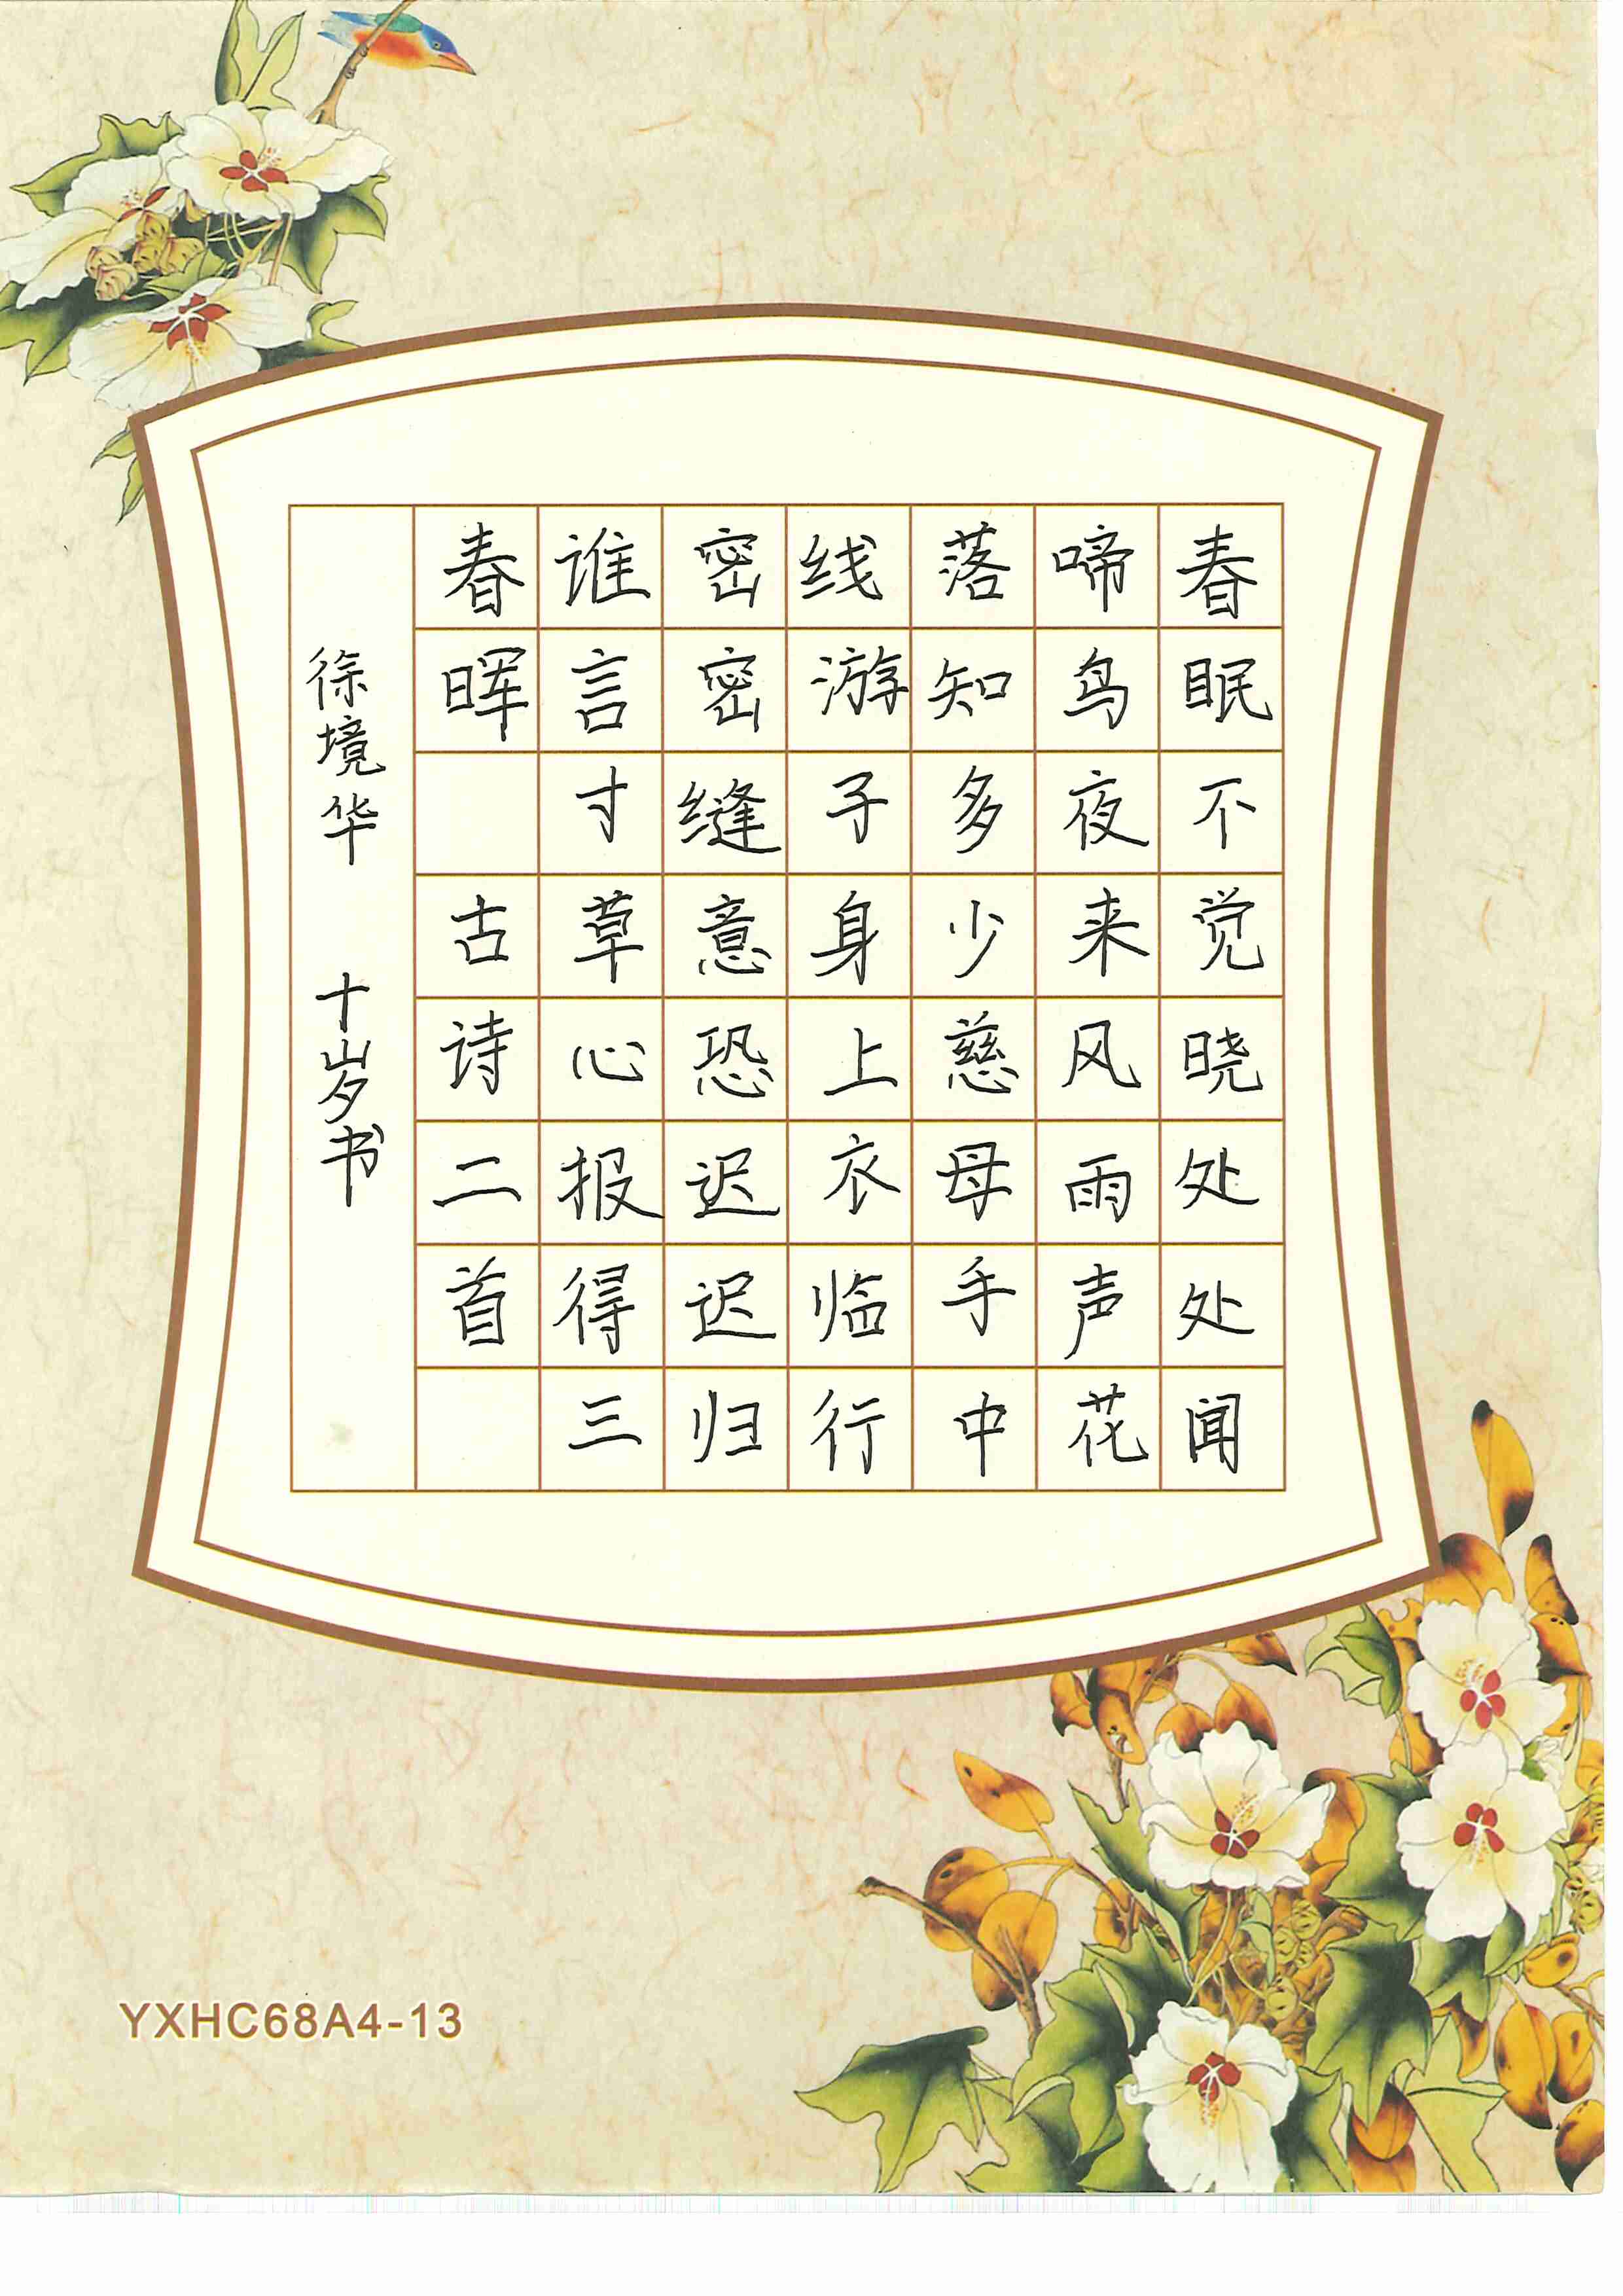 春眠不觉晓处处闻
啼鸟夜来风雨声花
落知多少慈母手中
线游子身上衣临行
密密缝意恐迟迟归
谁言寸草心报得三
春晖 古诗二首
徐境华 十岁书
YXHC68A4-13